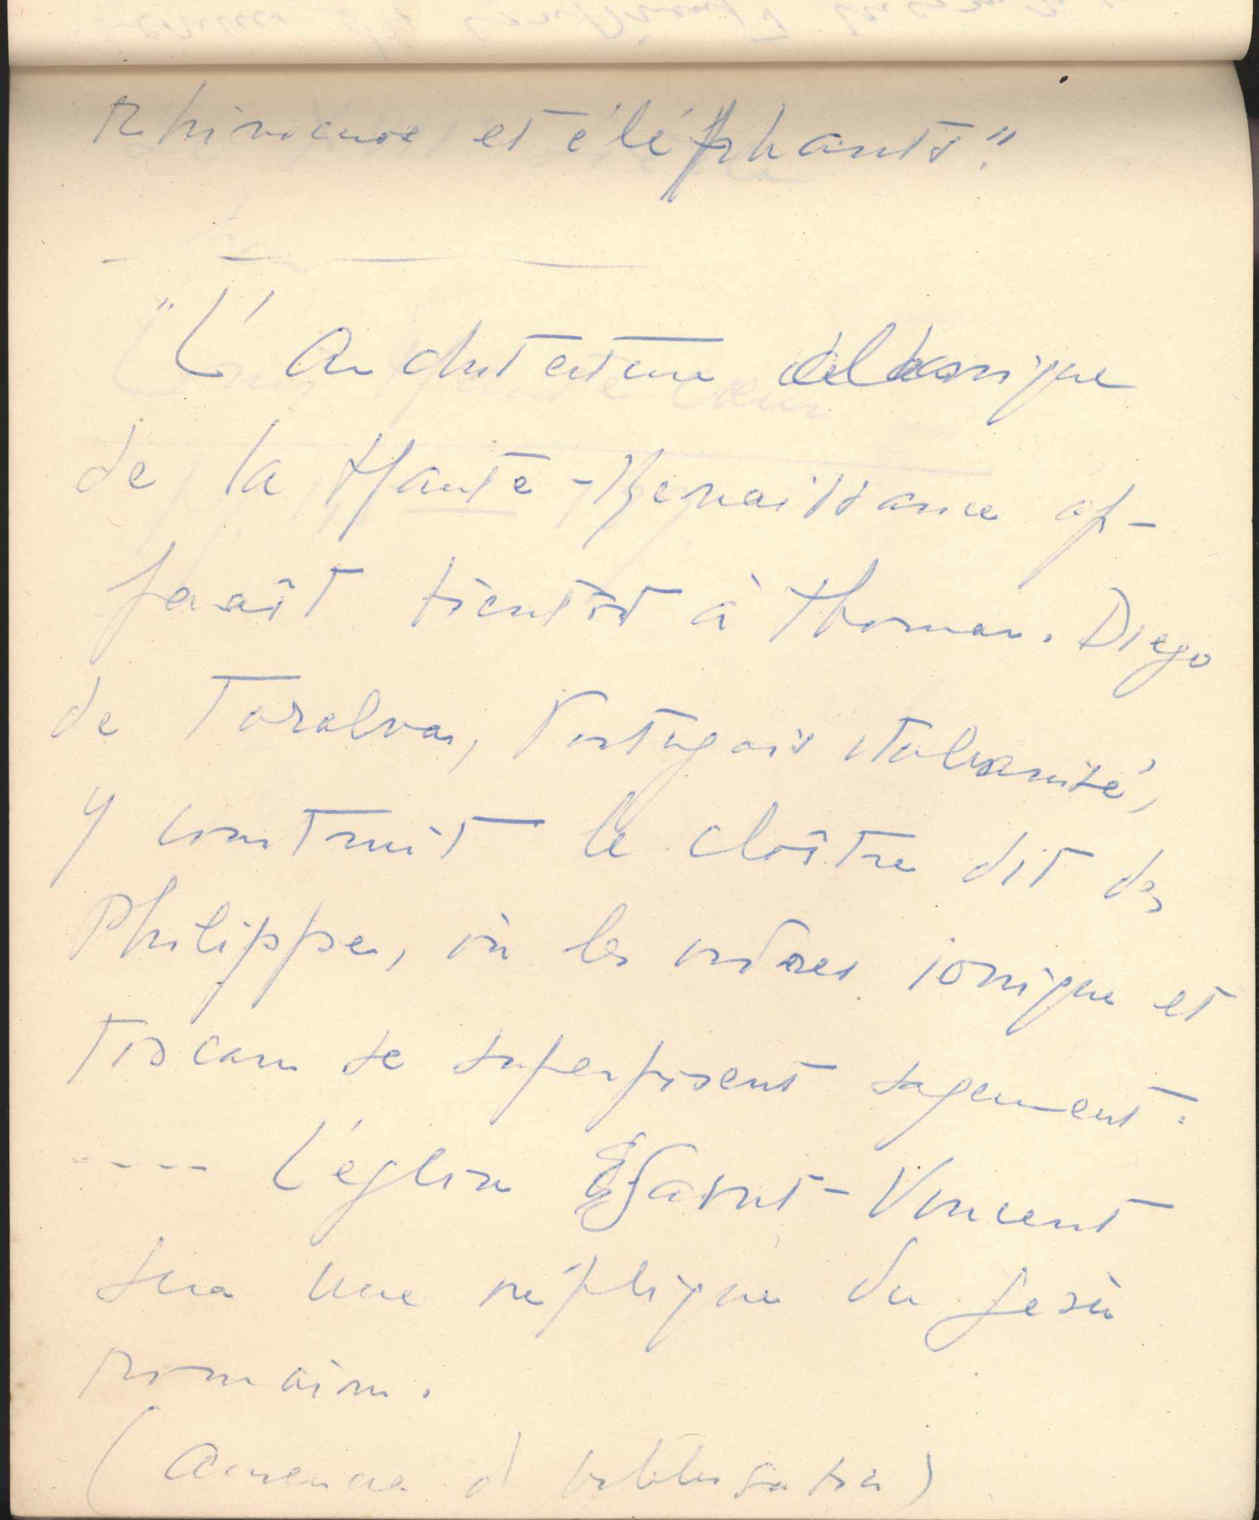 rhinoceros et éléphants".
"L'Architecture classique
de la Haute-Renaissance ap-
paraît bientôt à Thomar. Diego
de Toralva, Portugais italianisé,
y construit le cloître dit des
Philippe, où les ordres ionique et
toscan se superposent sagement.
---- L'église Saint-Vincent
sera une réplique du Jesù
romain.